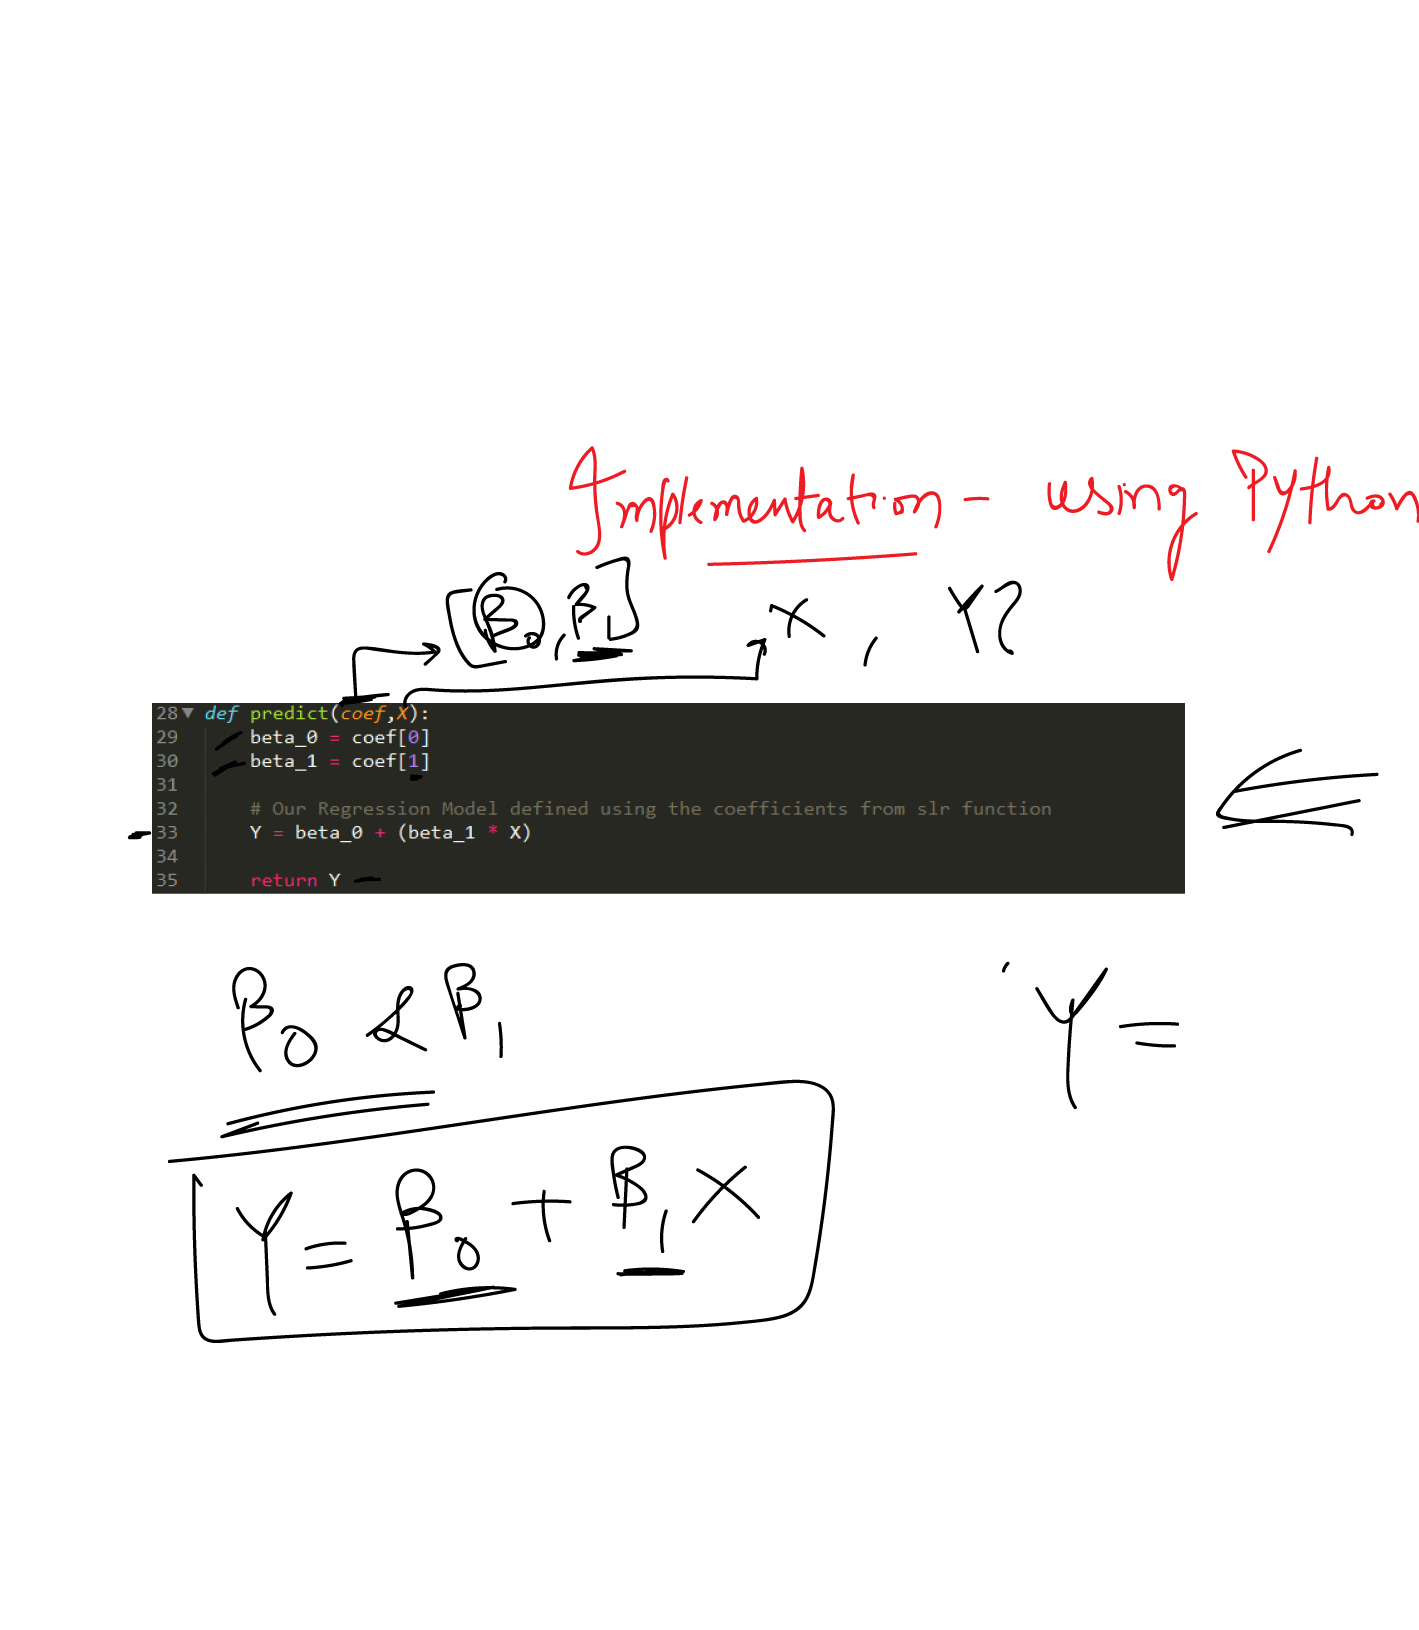 Implementation - using Python
[β₀, β₁] X , Y?
28 def predict(coef,X):
29 beta_0 = coef[0]
30 beta_1 = coef[1]
31
32 # Our Regression Model defined using the coefficients from slr function
33 Y = beta_0 + (beta_1 * X)
34
35 return Y
β₀ & β₁ Y =
Y = β₀ + β₁ X